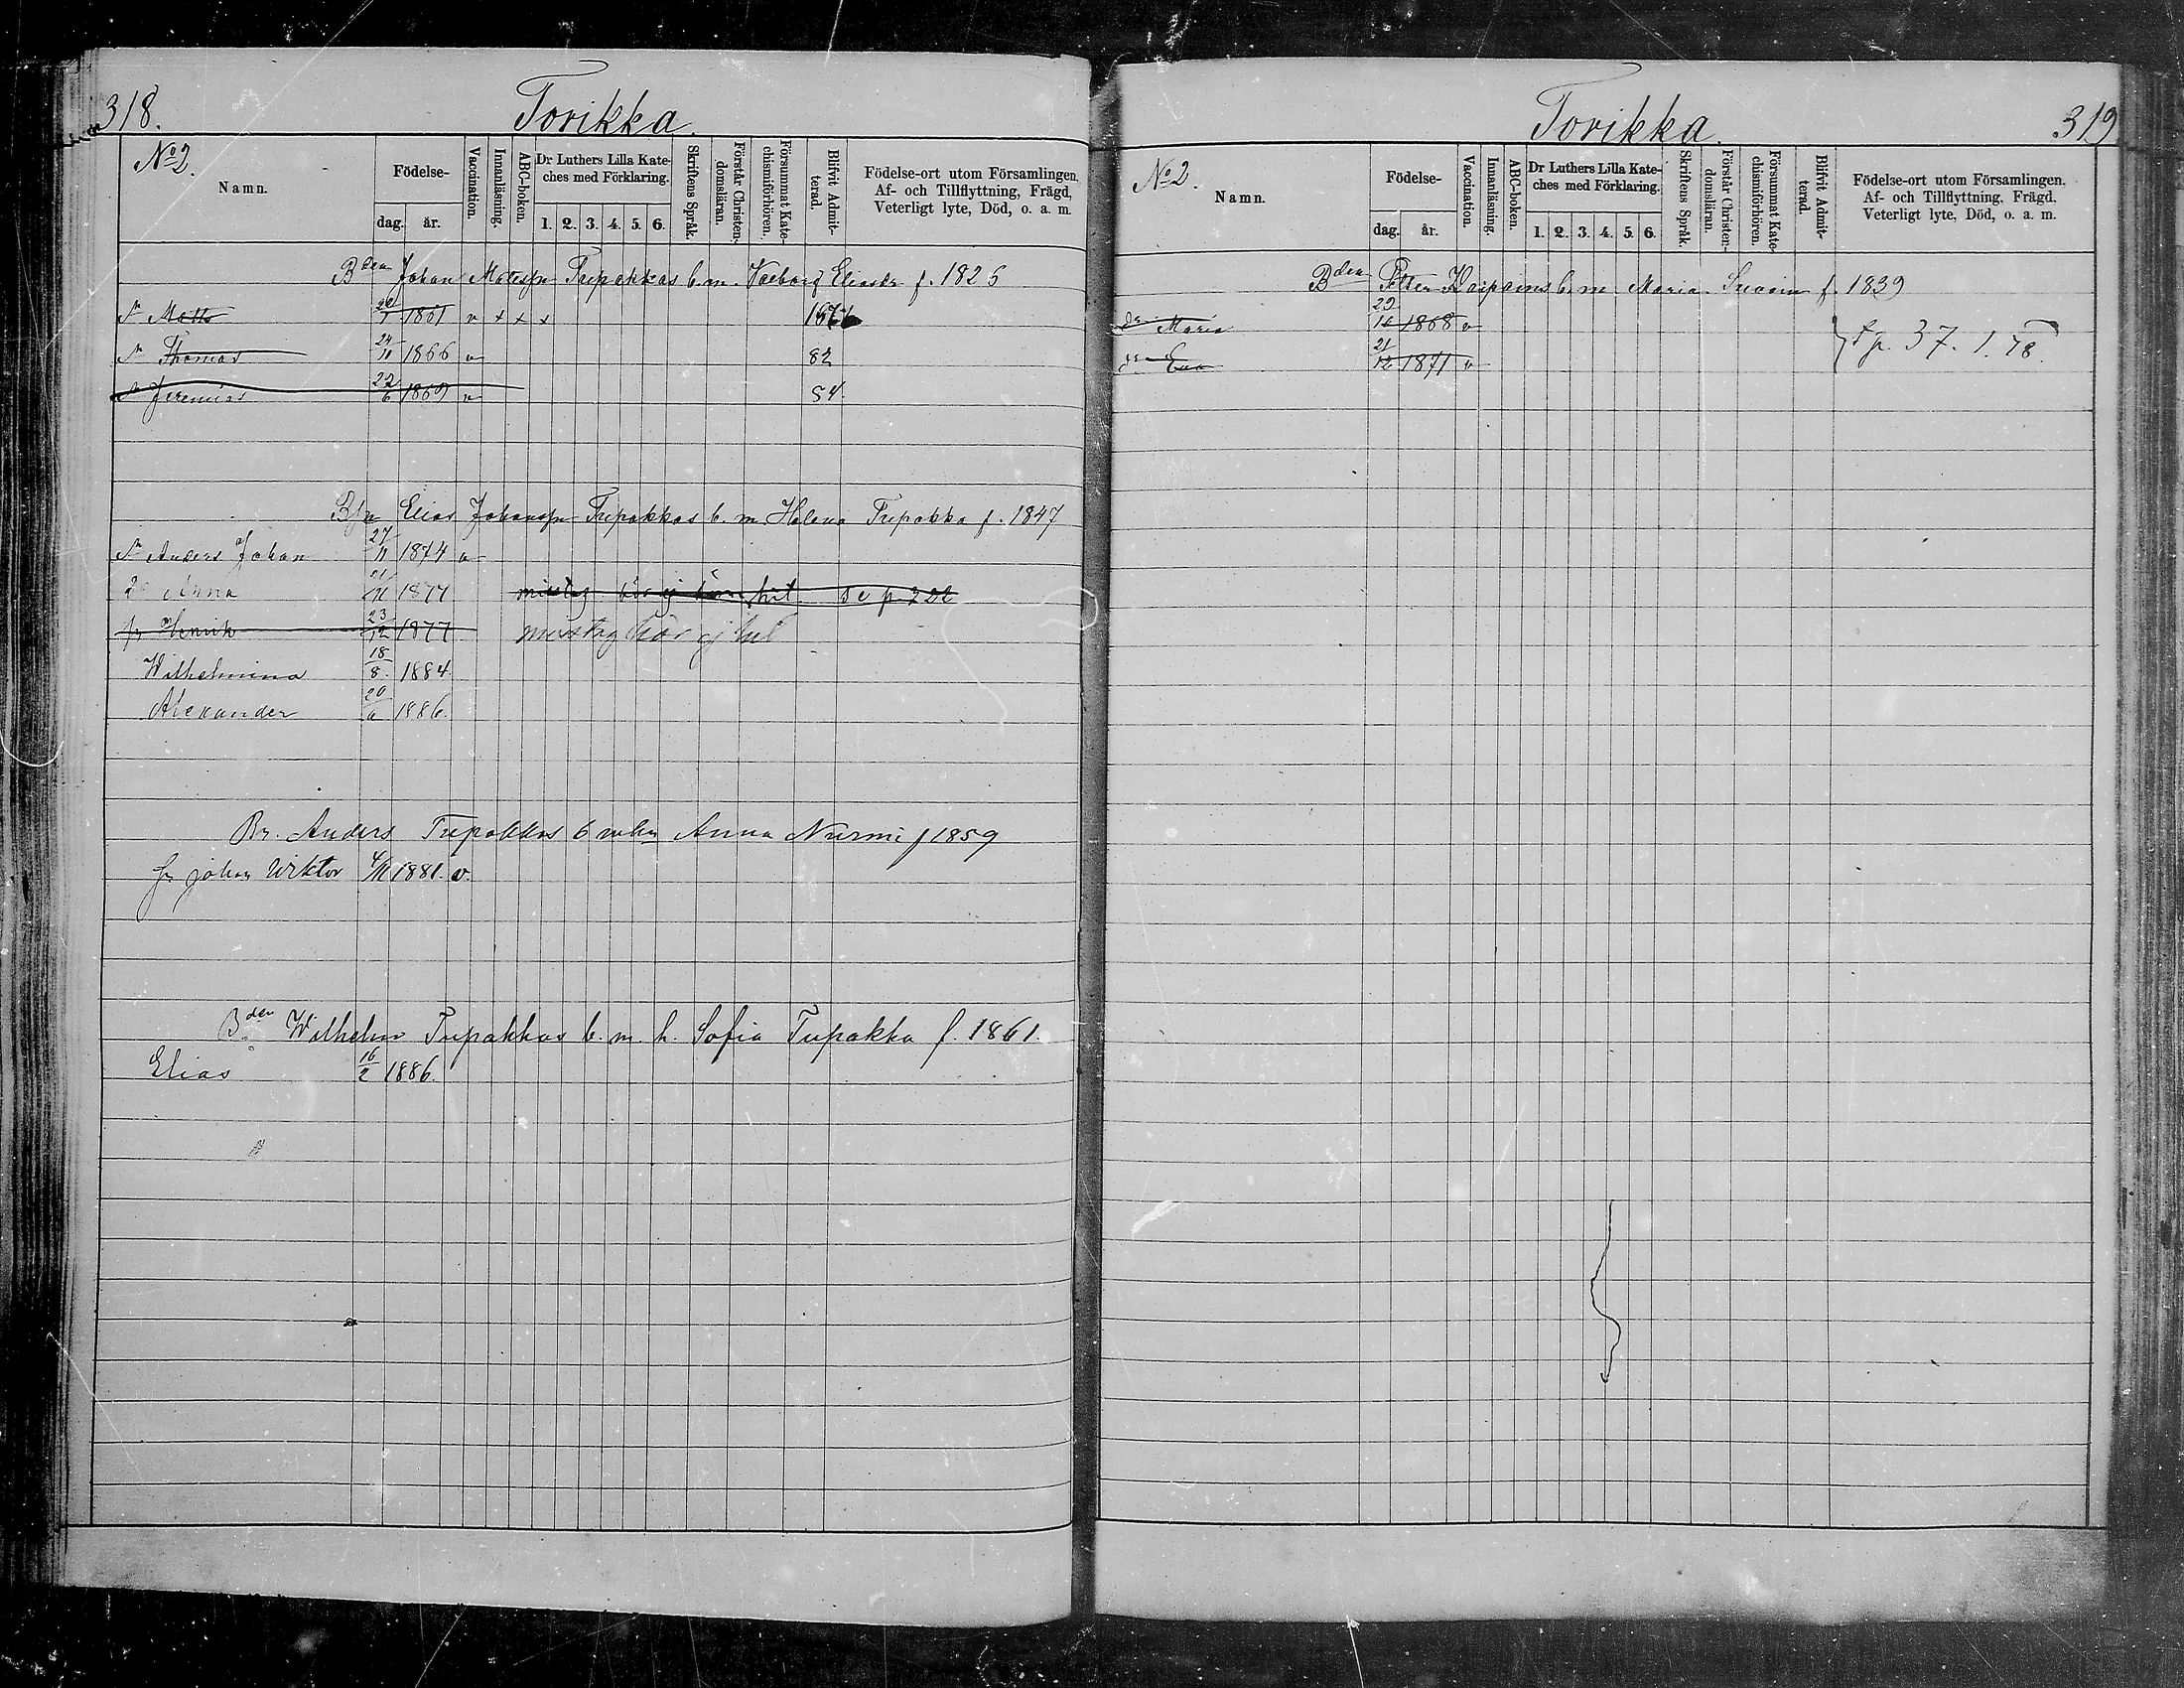 318.
Torikka.
No 2.
Namn.
Födelse-
dag. år.
Vaccination.
Innanläsning.
ABC-boken.
Dr Luthers Lilla Kate-
ches med Förklaring.
1. 2. 3. 4. 5. 6.
Skriftens Språk.
Förstår Christen-
domsläran.
Försummat Kate-
chismiförhören.
Blifvit Admit-
terad.
Födelse-ort utom Församlingen.
Af- och Tillflyttning, Frägd,
Veterligt lyte, Död, o. a. m.
Bden Johan Matsson Trepakkas b. m. Walborg Eliasdr f. 1825
Sn Matts 1861 v x x x
Sn Thomas 24/11 1866 v 82
Sn Jeremias 22/6 1869 v 84.
Bsn Elias Johansson Trepakkas b. m. Helena Trepakka f. 1847
Sn Anders Johan 27/11 1874 v
Dr Anna 21/11 1877 misstag hör ej hit Se p. 222
Sn Henrik 23/12 1877 misstag hör ej hit
Wilhelmina 18/8 1884.
Alexander 20/6 1886.
Br. Anders Trepakkas b m hu Anna Nurmi f 1859
Sn Johan Wiktor 4/11 1881. v.
Bden Wilhelm Trepakkas b. m. h. Sofia Trepakka f. 1861.
Elias 16/2 1886.
Torikka.
319
No 2.
Namn.
Födelse-
dag. år.
Vaccination.
Innanläsning.
ABC-boken.
Dr Luthers Lilla Kate-
ches med Förklaring.
1. 2. 3. 4. 5. 6.
Skriftens Språk.
Förstår Christen-
domsläran.
Försummat Kate-
chismiförhören.
Blifvit Admit-
terad.
Födelse-ort utom Församlingen.
Af- och Tillflyttning, Frägd,
Veterligt lyte, Död, o. a. m.
Bden Petter b. m. Maria f. 1839
dr Maria 1868 v
dr Eva 21/12 1871 v
p. 37. 1. 78.